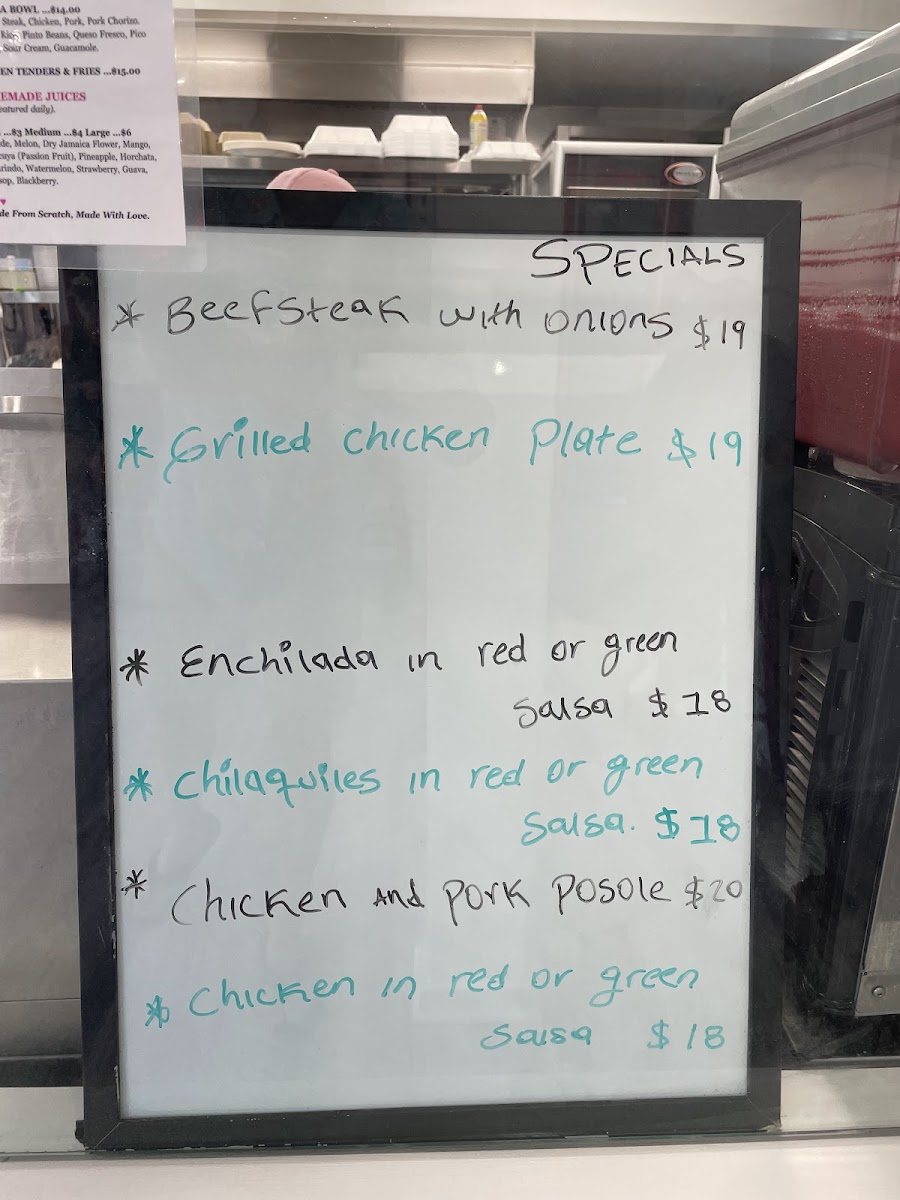 A BOWL ...$14.00
Steak, Chicken, Pork, Pork Chorizo.
Rice, Pinto Beans, Queso Fresco, Pico
Sour Cream, Guacamole.
EN TENDERS & FRIES ...$15.00
EMADE JUICES
eatured daily).
...$3 Medium ...$4 Large ...$6
de, Melon, Dry Jamaica Flower, Mango,
cuya (Passion Fruit), Pineapple, Horchata,
rindo, Watermelon, Strawberry, Guava,
sop, Blackberry.
de From Scratch, Made With Love.
SPECIALS
* Beefsteak with onions $19
* Grilled chicken Plate $19
* Enchilada in red or green
salsa $18
* Chilaquiles in red or green
Salsa. $18
* Chicken And Pork Posole $20
* Chicken in red or green
Salsa $18